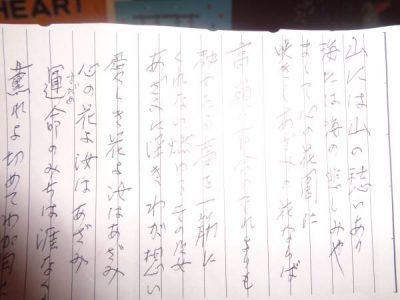 HEART
山には山の愁いあり
海には海の悲しみや
まして心の花園に
咲きしあざみの花ならば
高嶺の百合のそれよりも
秘めたる夢を一筋に
くれない燃ゆるその姿
あざみに深きわが想い
愛しき花よ汝はあざみ
心の花よ汝はあざみ
さだめ
運命のみちは涯なく
薫れよせめてわが胸